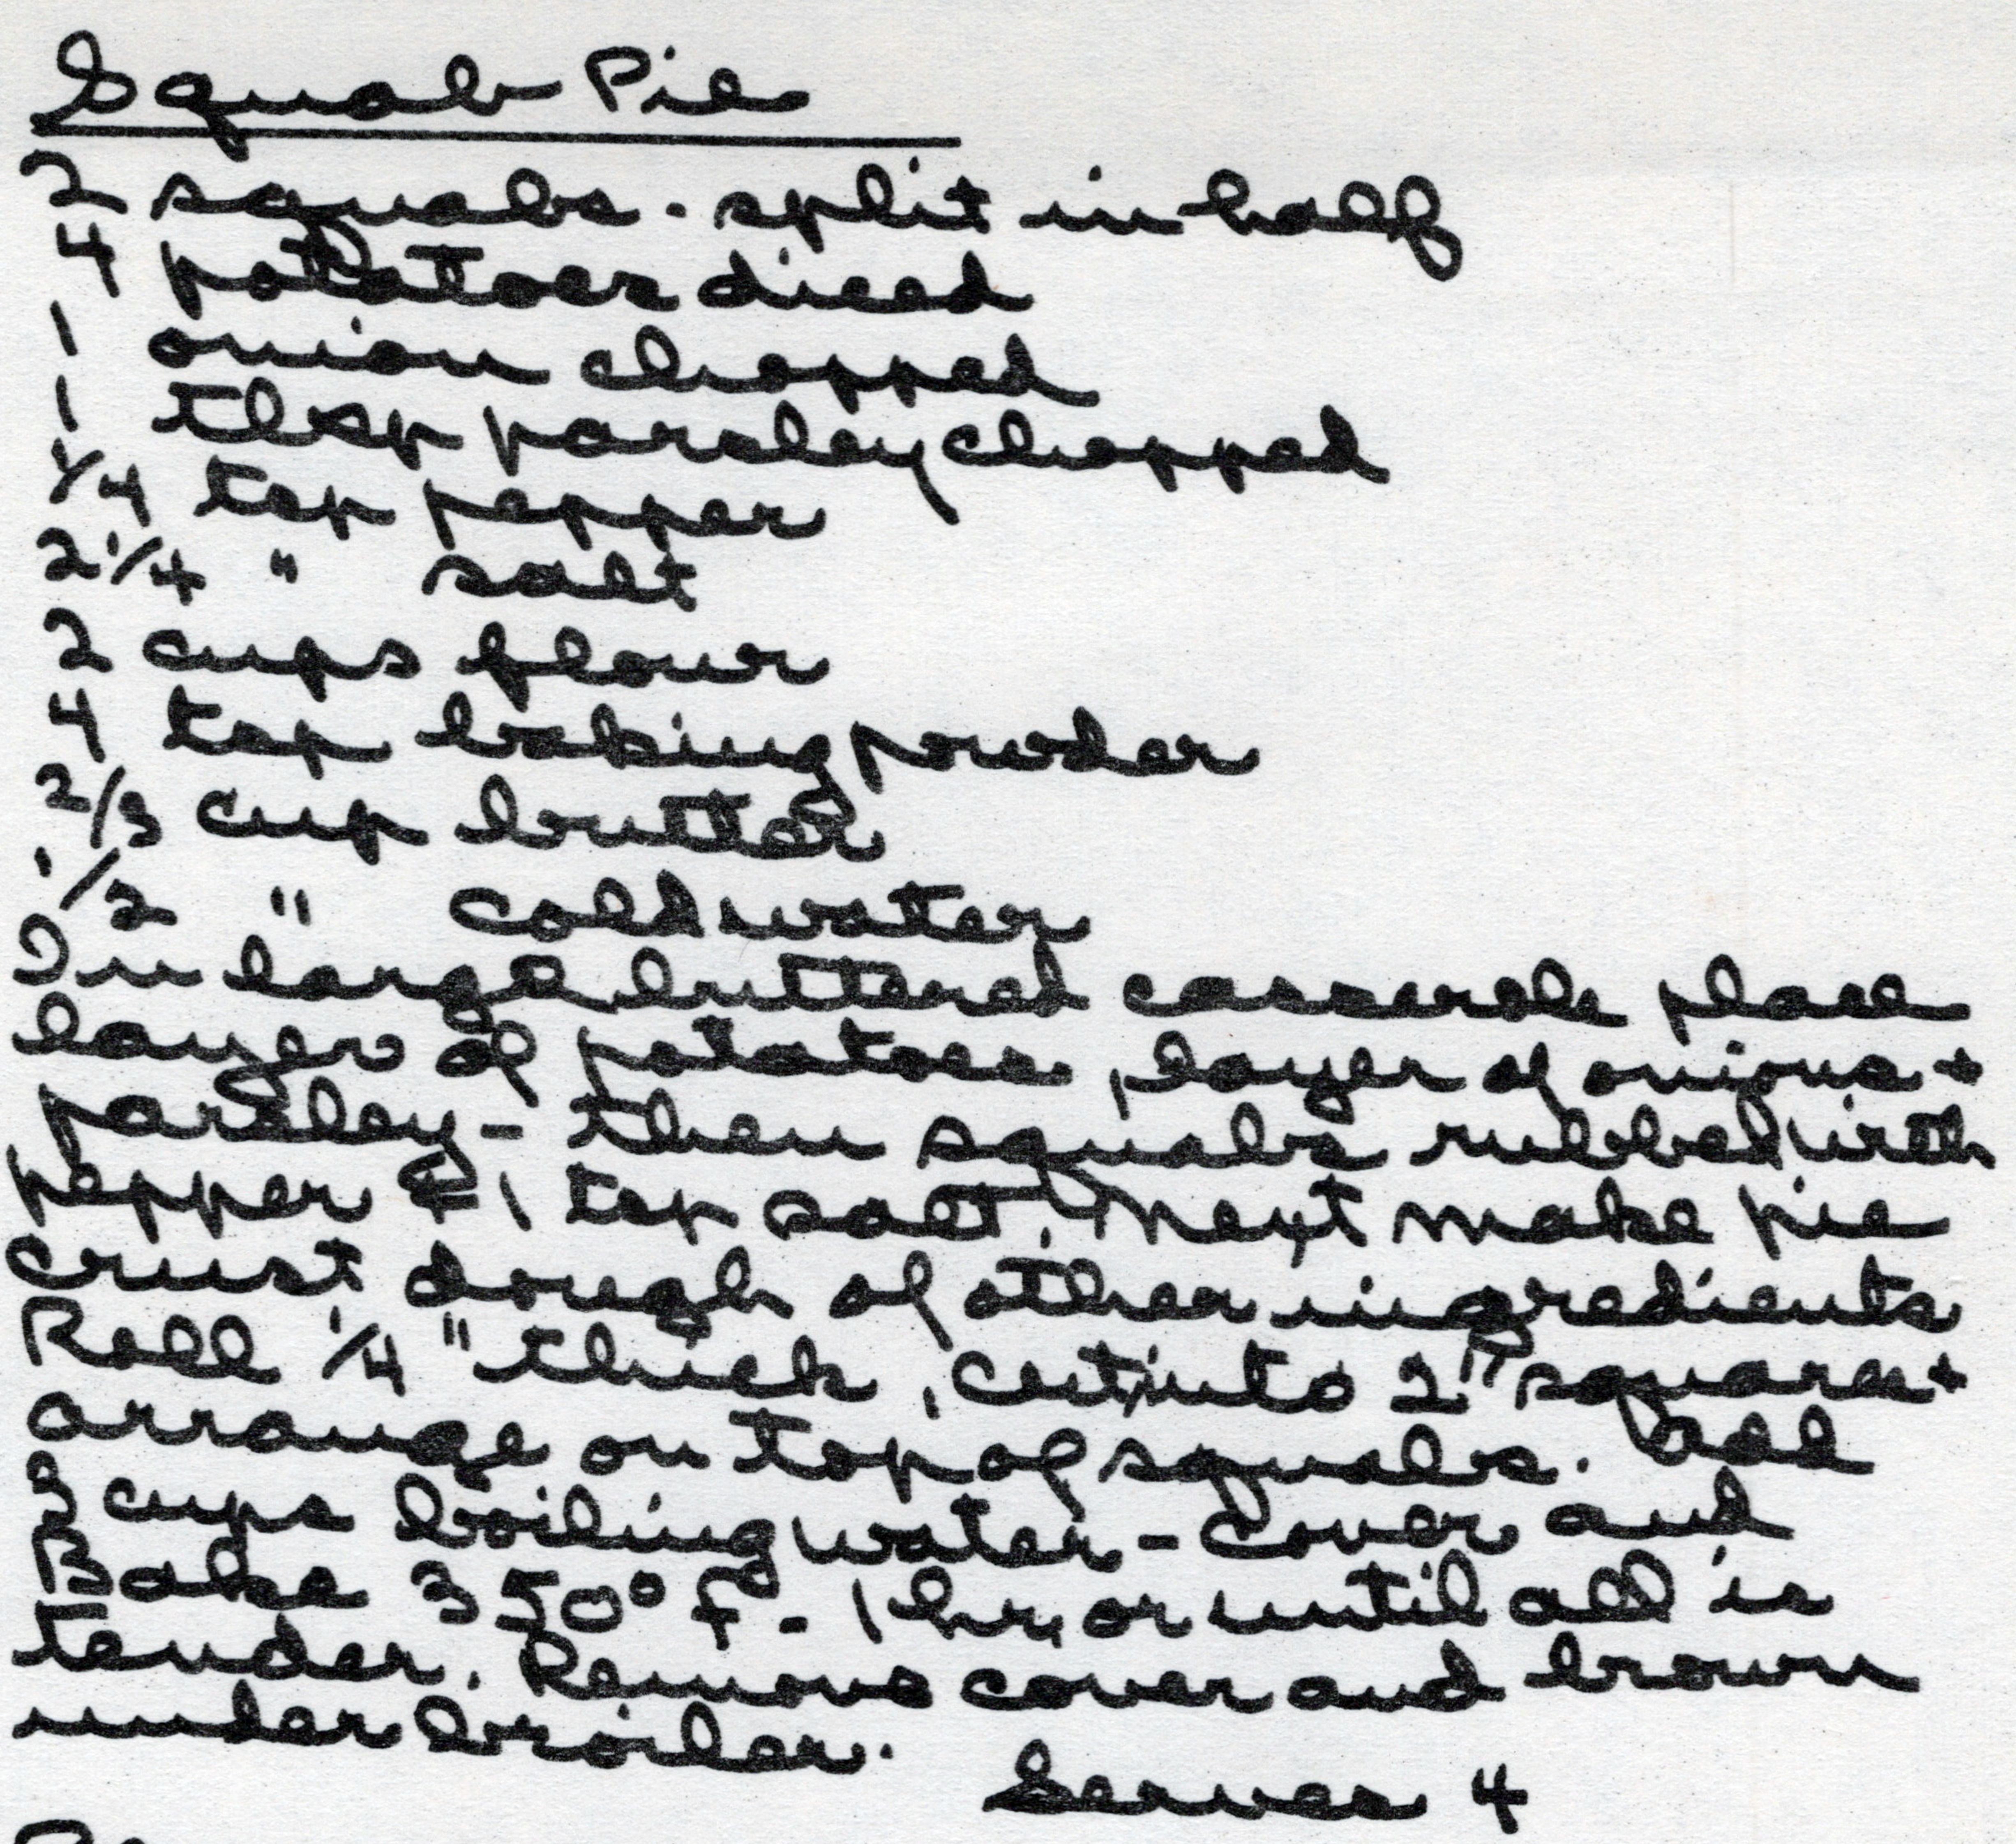 Squab Pie
2 squabs - split in half
4 potatoes diced
1 onion chopped
1 tbsp parsley chopped
1/4 tsp pepper
2 1/4 " salt
2 cups flour
4 tsp baking powder
2/3 cup butter
1/2 " cold water
In large buttered casserole place
layer of potatoes, layer of onions +
parsley - then squabs rubbed with
pepper & 1 tsp salt. Next make pie
crust dough of other ingredients
Roll 1/4" thick, cut into 2" squares +
arrange on top of squabs. Add
3 cups boiling water - cover and
Bake 350° F - 1 hr, or until all is
tender. Remove cover and brown
under broiler.
Serves 4